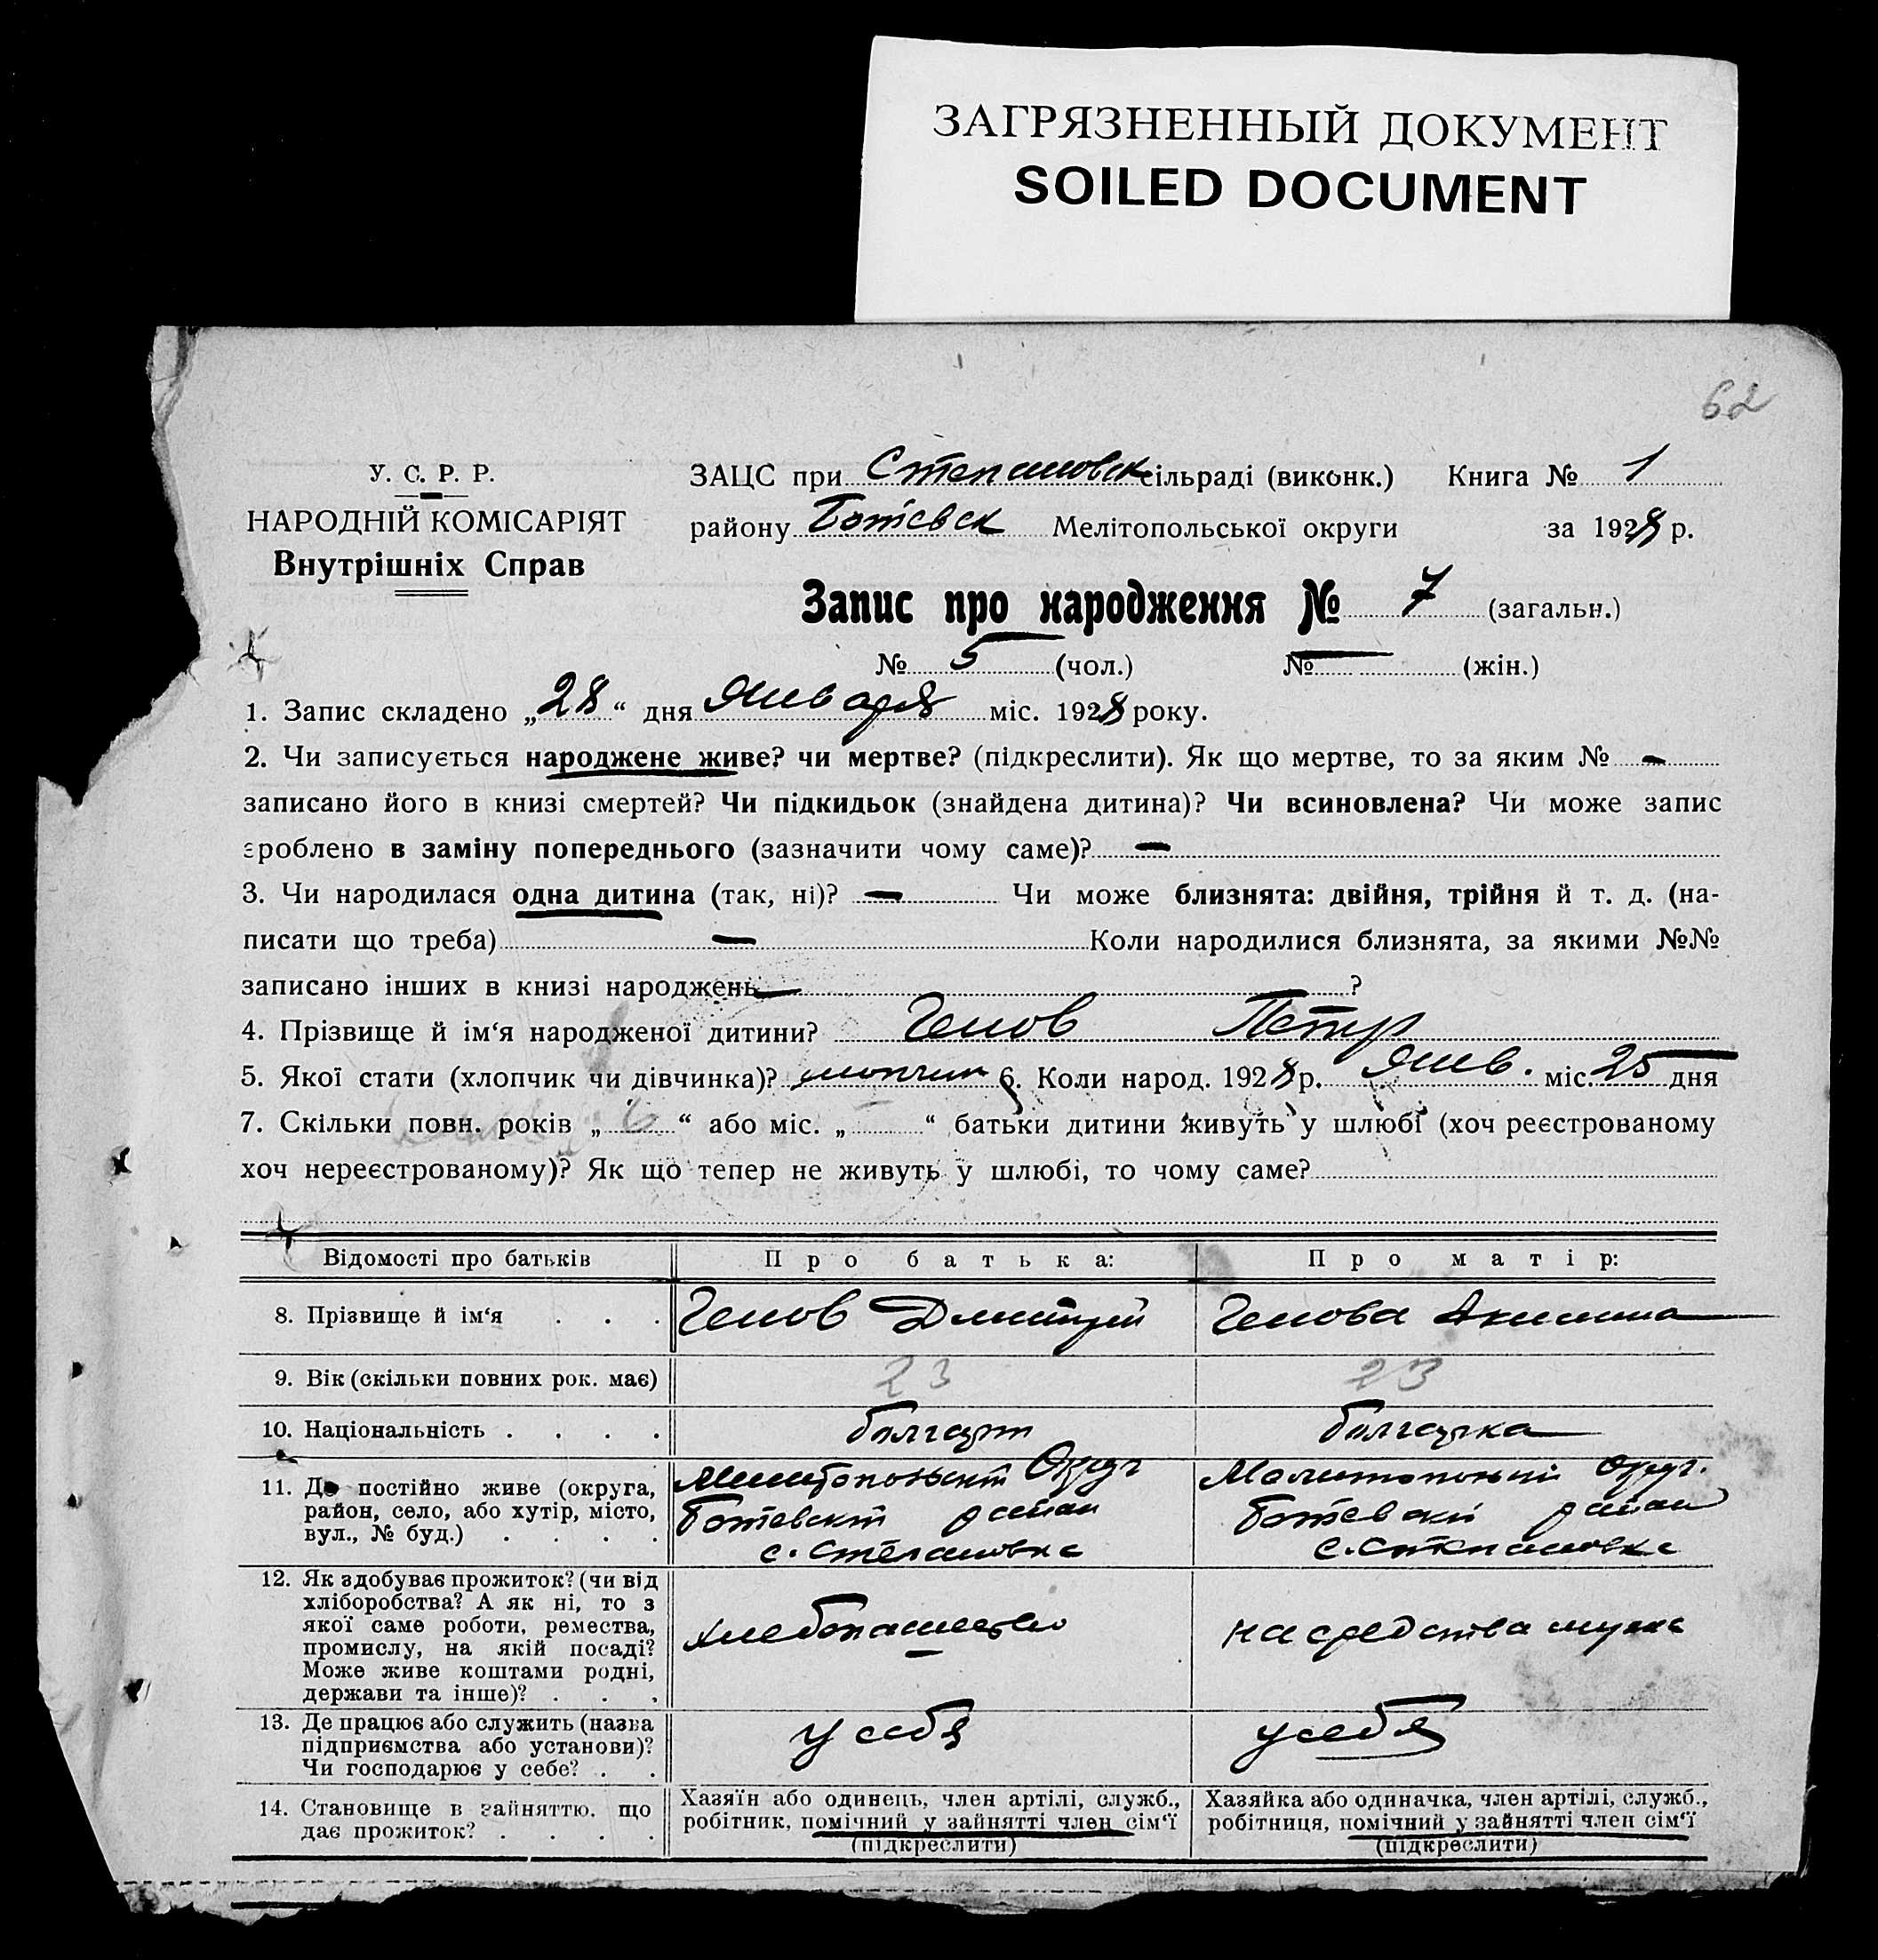 ЗАГРЯЗНЕННЫЙ ДОКУМЕНТ
SOILED DOCUMENT
62
У. С. Р. Р.
НАРОДНІЙ КОМІСАРІЯТ
Внутрішніх Справ
ЗАЦС при Степановск сільраді (виконк.) Книга № 1
району Ботієвск Мелітопольської округи за 1928 р.
Запис про народження № 7 (загальн.)
№ 5 (чол.) № — (жін.)
1. Запис складено „28“ дня Января міс. 1928 року.
2. Чи записується народжене живе? чи мертве? (підкреслити). Як що мертве, то за яким № —
записано його в книзі смертей? Чи підкидьок (знайдена дитина)? Чи всиновлена? Чи може запис
зроблено в заміну попереднього (зазначити чому саме)? —
3. Чи народилася одна дитина (так, ні)? — Чи може близнята: двійня, трійня й т. д. (на-
писати що треба) — Коли народилися близнята, за якими №№
записано інших в книзі народжень — ?
4. Прізвище й ім‘я народженої дитини? Генов Петр
5. Якої стати (хлопчик чи дівчинка)? 6. Коли народ. 1928 р. Янв. міс. 25 дня
7. Скільки повн. років „ “ або міс. „ “ батьки дитини живуть у шлюбі (хоч реєстрованому
хоч нереєстрованому)? Як що тепер не живуть у шлюбі, то чому саме?
Відомості про батьків Про батька: Про матір:
8. Прізвище й ім‘я . . . Генов Дмитрий Генова Акилина
9. Вік (скільки повних рок. має) 23 23
10. Національність . . . . болгарин болгарка
11. Де постійно живе (округа, Мелитопольский Округ Мелитопольский Округ.
район, село, або хутір, місто, Ботевский район Ботевский район
вул., № буд.) . . . . с. Степановка с. Степановка
12. Як здобуває прожиток? (чи від
хліборобства? А як ні, то з
якої саме роботи, ремества, хлебопашество на средства мужа
промислу, на якій посаді?
Може живе коштами родні,
держави та інше)? . . .
13. Де працює або служить (назва у себя у себя
підприємства або установи)?
Чи господарює у себе? . .
14. Становище в зайняттю, що Хазяїн або одинець, член артілі, служб., Хазяйка або одиначка, член артілі, служб.,
дає прожиток? . . . . робітник, помічний у зайнятті член сім‘ї робітниця, помічний у зайнятті член сім‘ї
(підкреслити) (підкреслити)